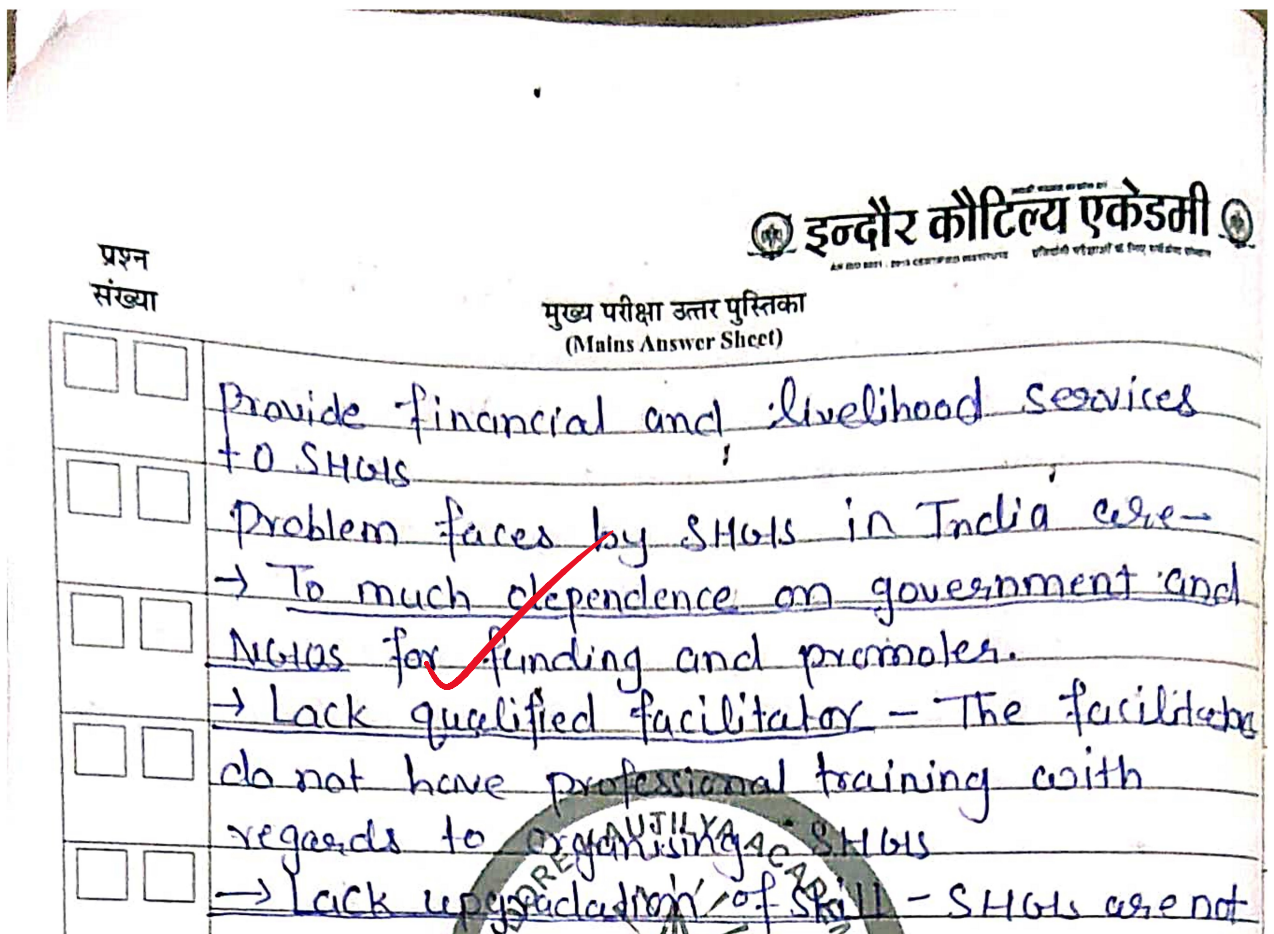 इन्दौर कौटिल्य एकेडमी
AN ISO 9001 : 2015 CERTIFIED INSTITUTE
प्रश्न
संख्या
मुख्य परीक्षा उत्तर पुस्तिका
(Mains Answer Sheet)
Provide financial and livelihood services
to SHGs
Problem faces by SHGs in India are-
→ To much dependence on government and
NGOs for funding and promoles.
→ Lack qualified facilitator - The facilitators
do not have professional training with
regards to organising SHGs
→ Lack upgradation of skill - SHGs are not
INDORE KAUTILYA ACADEMY